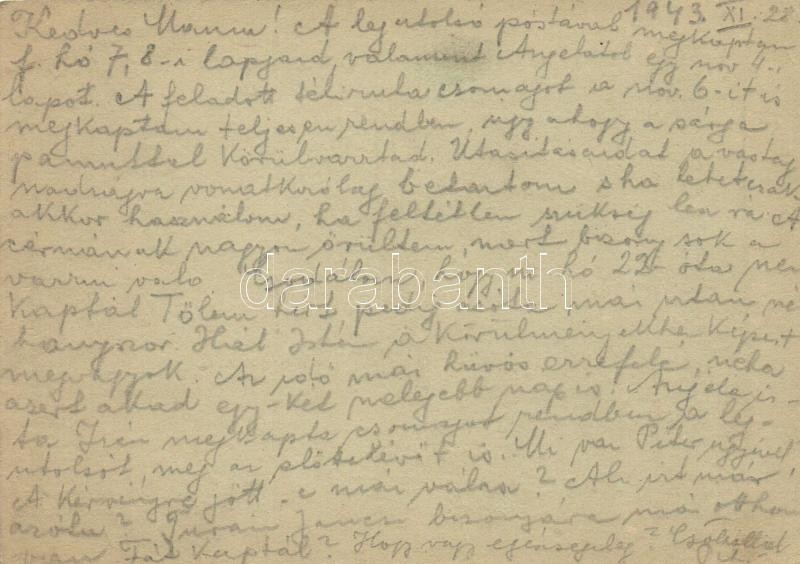 1943. XI. 28.
Kedves Mama! A legutolsó postával megkaptam
f. hó 7, 8-i lapjaid, valamint Angelától egy nov 4-i
lapot. A feladott téliruha csomagot a nov. 6-it is
megkaptam teljesen rendben, úgy ahogy a sárga
pamuttal körülvarrtad. Utasításaidat a vastag
nadrágra vonatkozólag betartom s ha lehet csak
akkor használom, ha feltétlen szükség lesz rá. A
cérnának nagyon örültem, mert bizony sok a
varrni való. Csodálom, hogy m. hó 22 óta nem
kaptál Tőlem hírt pedig azóta már írtam né
hányszor. Hál Isten a körülményekhez képest
megvagyok. Az idő már hűvös errefelé, néha
azért akad egy-két melegebb nap is. Angela is
ta Irén megkapta csomagot rendben a leg-
utolsót, meg az előttelévőt is. Mi van Péter ügyével
A kérvényre jött-e már válasz? Ali írt már
azóta? Turain Jancsi bizonyára már otthon
van Fát kaptál? Hogy vagy egészségileg? Csókollak
darabanth